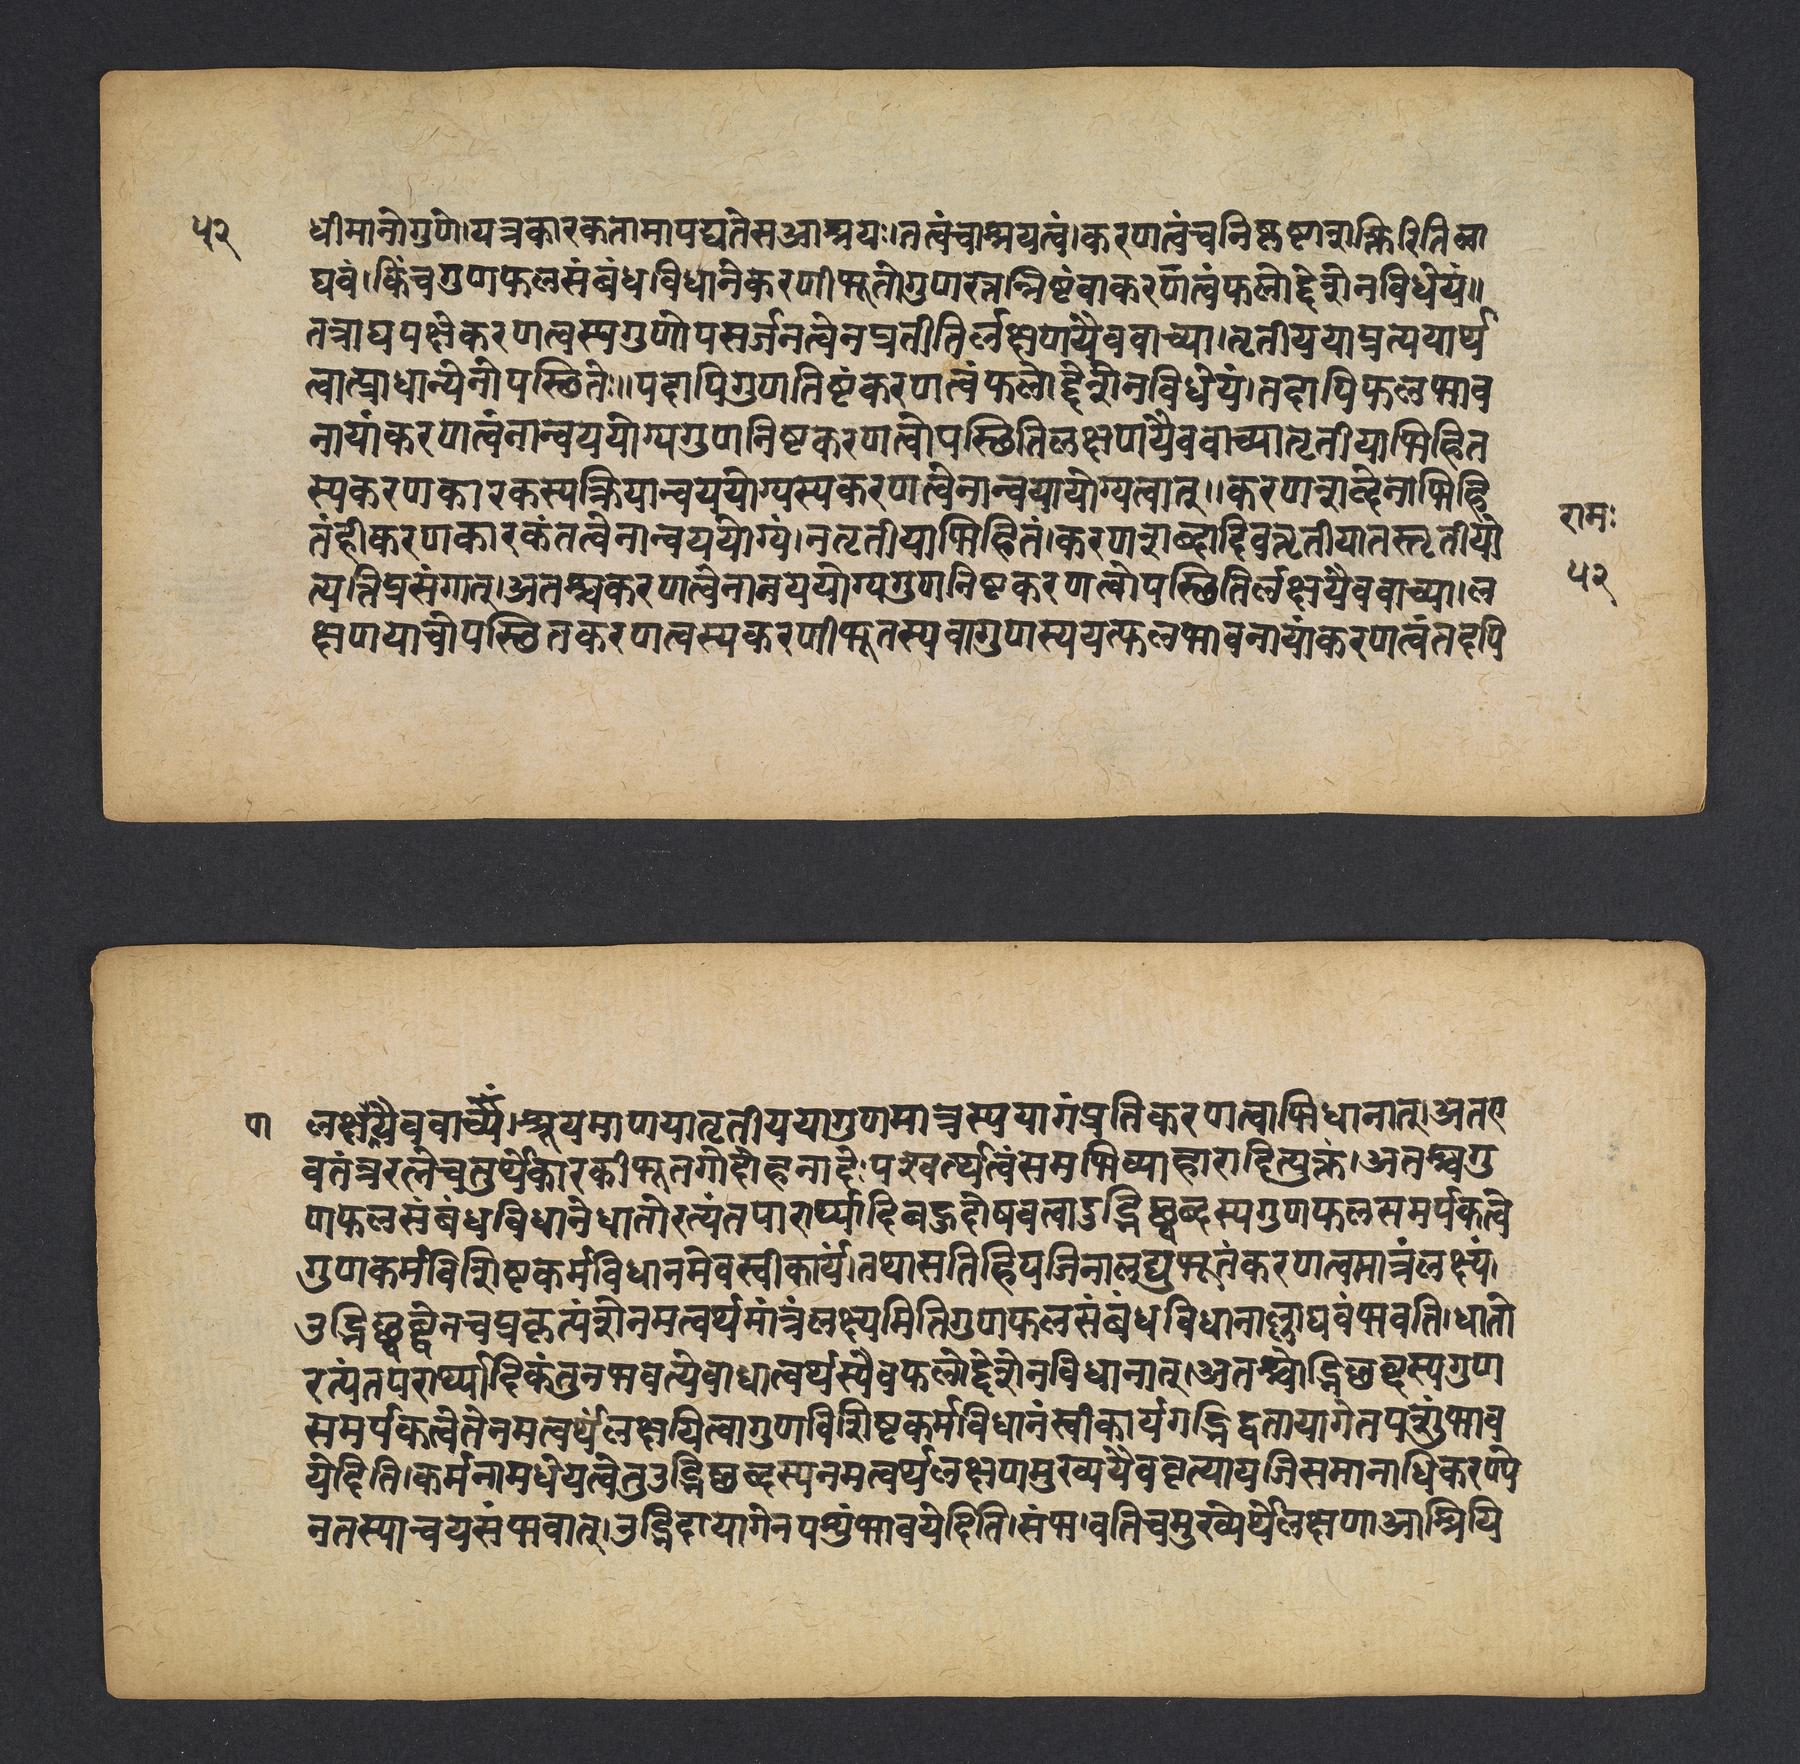 ५२
धीमानोगुणो।यत्रकारकतामापद्यतेसआश्रयः।तत्वंचाश्रयत्वं।करणत्वंचनिष्कृष्टाशक्तिरितिला
घवं।किंचगुणफलसंबंधविधानेकरणीभूतोगुणस्तन्निष्टंवाकरणत्वंफलोद्देशेनविधेयं॥
तत्राद्यपक्षेकरणत्वस्यगुणोपसर्जनत्वेनप्रतीतिर्लक्षणयैववाच्या।तृतीययाप्रत्ययार्थ
त्वात्प्राधान्येनोपस्छितेः॥यदापिगुणतिष्टंकरणत्वंफलोद्देशेनविधेयं।तदापिफलभाव
नायांकरणत्वेनान्वययोग्यगुणनिष्टकरणत्वोपस्छितिलक्षणयैववाच्यातृतीयाभिहित
स्यकरणकारकस्यक्रियान्वययोग्यस्यकरणत्वेनान्वयायोग्यत्वात्॥करणशब्देनाभिहि
तंहीकरणकारकंतत्वेनान्वययोग्यं।नतृतीयाभिहितं।करणशब्दादिवतृतीयातस्तृतीयो
त्यत्तिप्रसंगात्।अतश्चकरणत्वेनान्वययोग्यगुणनिष्टकरणत्वोपस्छितिर्लक्षयैववाच्या।ल
क्षणयाचोपस्छितकरणत्वस्यकरणीभूतस्यवागुणस्ययत्फलभावनायांकरणत्वंतदपि
रामः
५२
ण
लक्षयैववाच्यं।श्रूयमाणयातृतीययागुणमात्रस्ययागंप्रतिकरणत्वाभिधानात्।अतए
वतंत्ररत्नेचतुर्थेकारकीभूतगोदोहनादेःपश्वर्त्थत्वंसमभिव्याहारादित्युक्तं।अतश्चगु
णफलसंबंधविधानेधातोरत्यंतपारार्थ्यादिबहुदोषवत्वादुद्भिछब्दस्यगुणफलसमर्पकत्वे
गुणकर्मविशिष्टकर्मविधानमेवस्वीकार्यं।तथासतिहियजिनालघुभूतंकरणत्वमात्रंलक्ष्यं।
उद्भिछब्देनचप्रकृत्यंशेनमत्वर्थमात्रंलक्ष्यमितिगुणफलसंबंधविधानाल्लाघवंभवति।धातो
रत्यंतपरार्थ्यादिकंतुनभवत्येवाधात्वर्थस्यैवफलोद्देशेनविधानात्।अतश्चोद्भिछब्दस्यगुण
समर्पकत्वेतेनमत्वर्थंलक्षयित्वागुणविशिष्टकर्मविधानंस्वीकार्यंगद्भिद्वतायागेनपशुंभाव
येदिति।कर्मनामधेयत्वेतुउद्भिछब्दस्यनमत्वर्थलक्षणामुख्ययैववृत्यायजिसमानाधिकरण्ये
नतस्यान्वयसंभवात्।उद्भिदायागेनपश्युंभावयेदिति।संभवतिचमुख्येर्थेलक्षणाआश्रियि